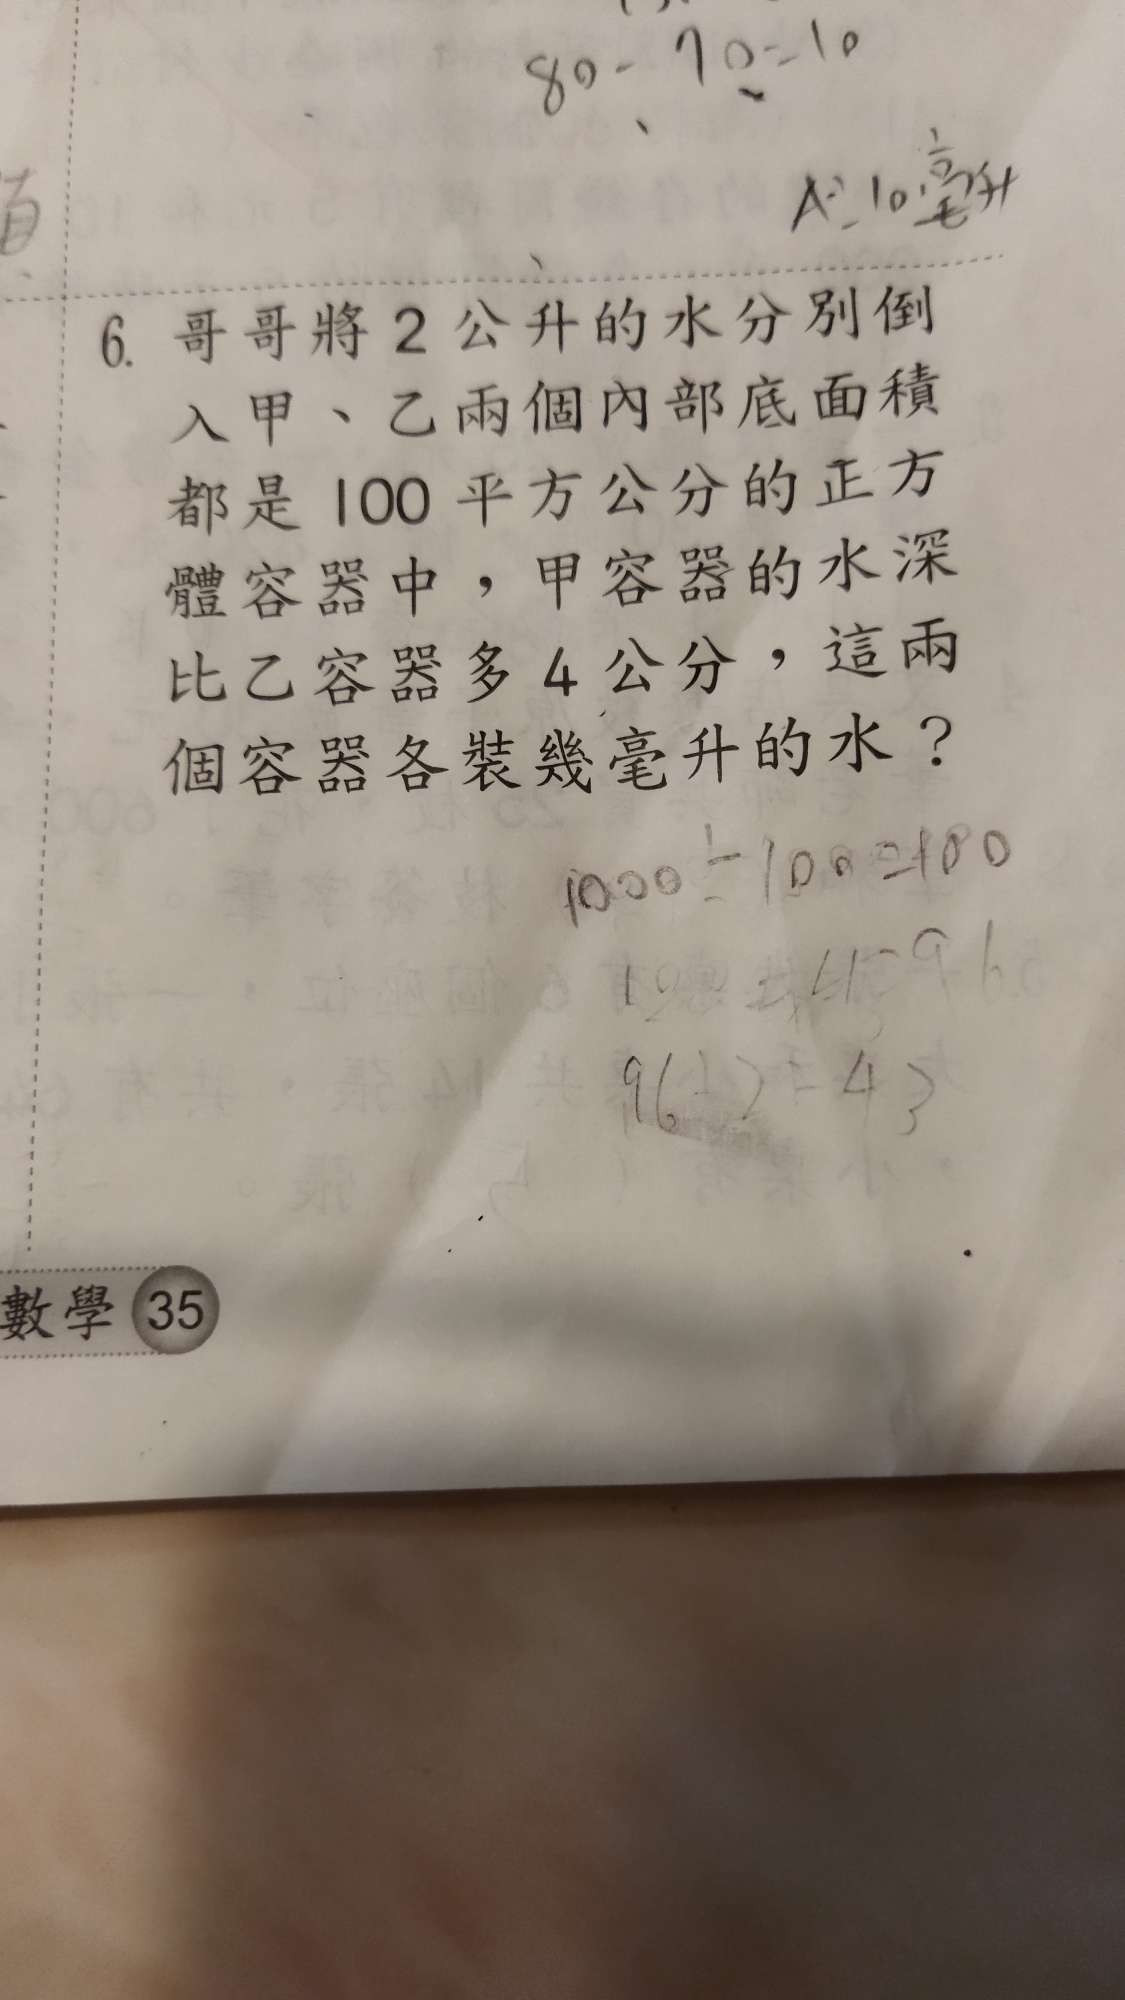 80-70=10
A:10毫升
6. 哥哥將2公升的水分別倒
入甲、乙兩個內部底面積
都是100平方公分的正方
體容器中，甲容器的水深
比乙容器多4公分，這兩
個容器各裝幾毫升的水？
1000÷100=100
100-4=96
96÷2=43
數學 35